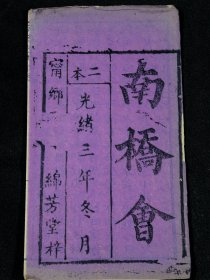 南橋會
光緒三年冬月
二本
甯鄉
綿芳堂梓